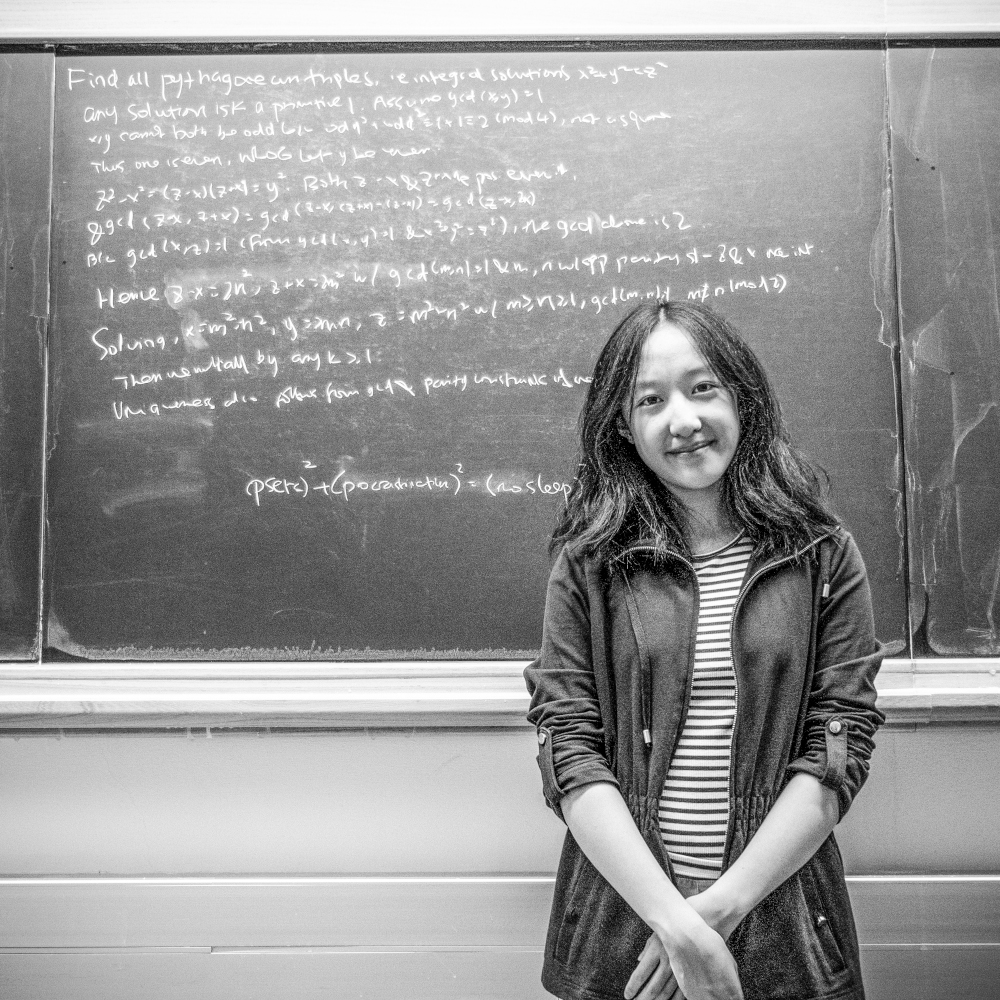 Find all pythagorean triples, i.e integral solutions x²+y²=z²
any solution is k · a primitive 1. Assume gcd(x,y)=1
x,y cannot both be odd b/c odd²+odd² ≡ 1+1 ≡ 2 (mod 4), not a square
Thus one is even, WLOG let y be even.
z²-x²=(z-x)(z+x)=y². Both z-x & z+x are pos even #,
& gcd(z-x, z+x) = gcd(z-x, (z+x)-(z-x)) = gcd(z-x, 2x)
B/c gcd(x,z)=1 (from gcd(x,y)=1 & x²+y²=z²), the gcd above is 2
Hence z-x=2n², z+x=2m² w/ gcd(m,n)=1 & m, n w/ opp parity st z & x are int.
Solving, x=m²-n², y=2mn, z=m²+n² w/ m>n≥1, gcd(m,n)=1, m≢n (mod 2)
Then we mult all by any k≥1.
Uniqueness also follows from gcd & parity constraints
(psets)²+(procrastination)²=(no sleep